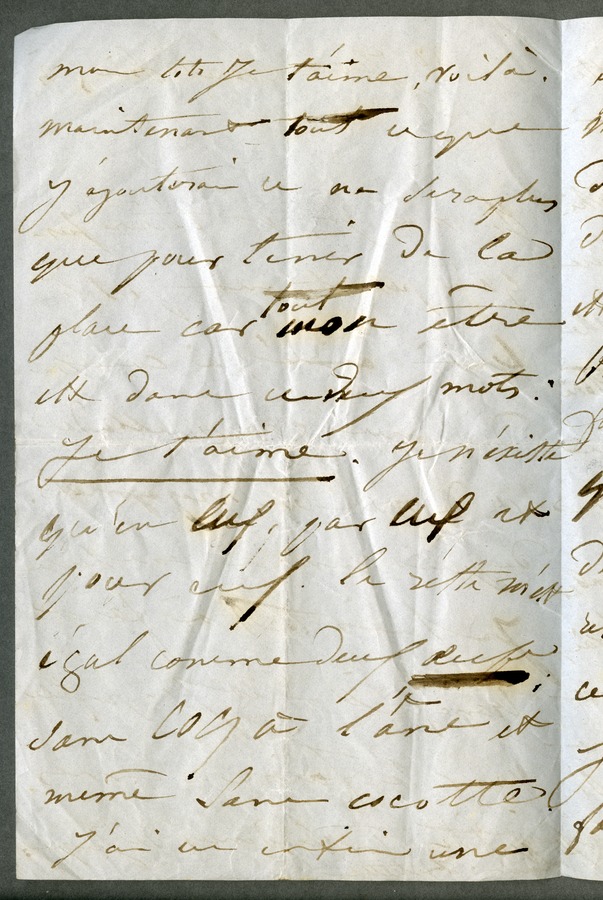 mon toto Je t'aime, voilà.
maintenant tout ce que
j'ajouterai ce ne sera plus
que pour tenir de la
place car tout mon être
est dans ces deux mots:
Je t'aime. Je n'existe
qu'en eux, par eux et
pour eux. le reste m'est
égal comme deux œufs
sans coq à l'âne et
même sans cocotte.
J'ai vu enfin une